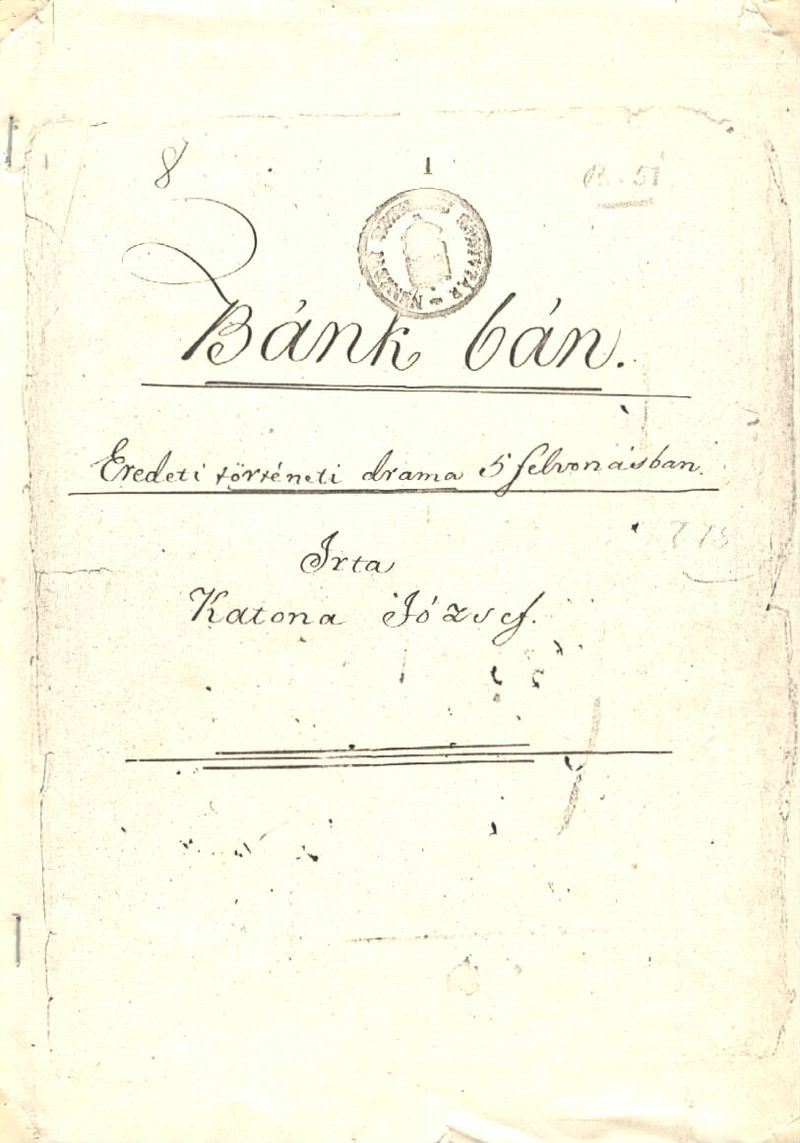 8
1
Bánk bán.
Eredeti történeti drama 5 felvonásban.
Irta
Katona József.